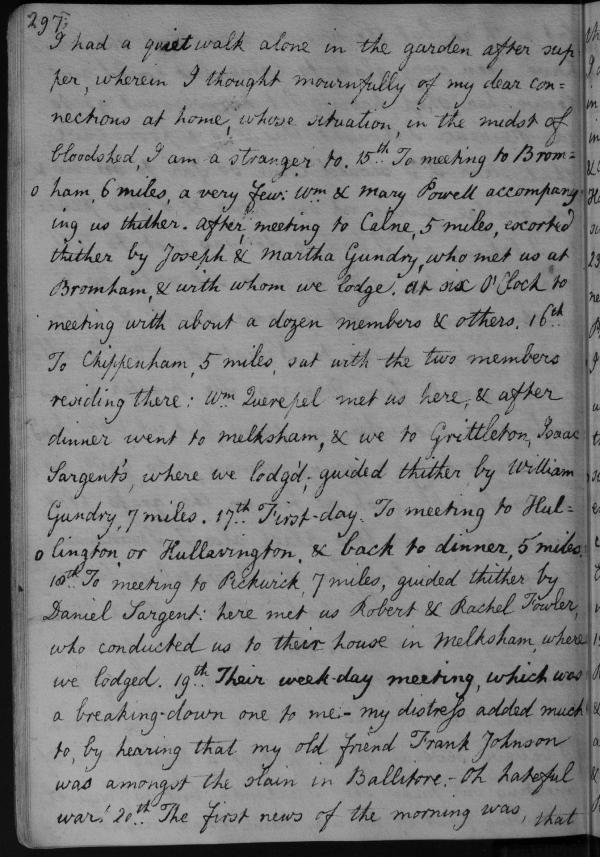 297
I had a quiet walk alone in the garden after sup
per, wherein I thought mournfully of my dear con=
nections at home, whose situation, in the midst of
bloodshed, I am a stranger to. 15th To meeting to Brom=
o ham, 6 miles, a very few: Wm & Mary Powell accompany
ing us thither. After meeting to Calne, 5 miles, escorted
thither by Joseph & Martha Gundry, who met us at
Bromham, & with whom we lodge. At six O'Clock to
meeting with about a dozen members & others. 16th
To Chippenham, 5 miles, sat with the two members
residing there: Wm Querepel met us here, & after
dinner went to Melksham, & we to Grittleton, Isaac
Sargent's, where we lodg'd; guided thither by William
Gundry, 7 miles. 17th First-day. To meeting to Hul=
o lington or Hullavington, & back to dinner, 5 miles.
18th To meeting to Pickwick, 7 miles, guided thither by
Daniel Sargent: here met us Robert & Rachel Fowler,
who conducted us to their house in Melksham, where
we lodged. 19th Their week-day meeting, which was
a breaking-down one to me:- my distress added much
to, by hearing that my old friend Frank Johnson
was amongst the slain in Ballitore.- Oh hateful
war! 20th The first news of the morning was, that